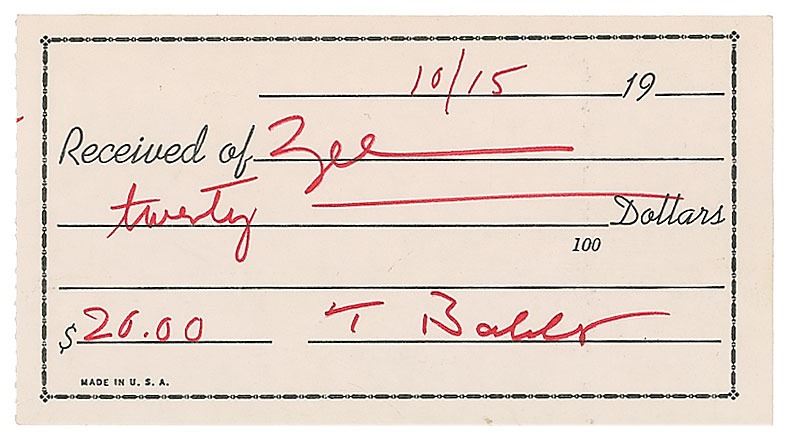 10/15 19
Received of Zee
twenty Dollars
100
$ 20.00 T Baker
MADE IN U. S. A.